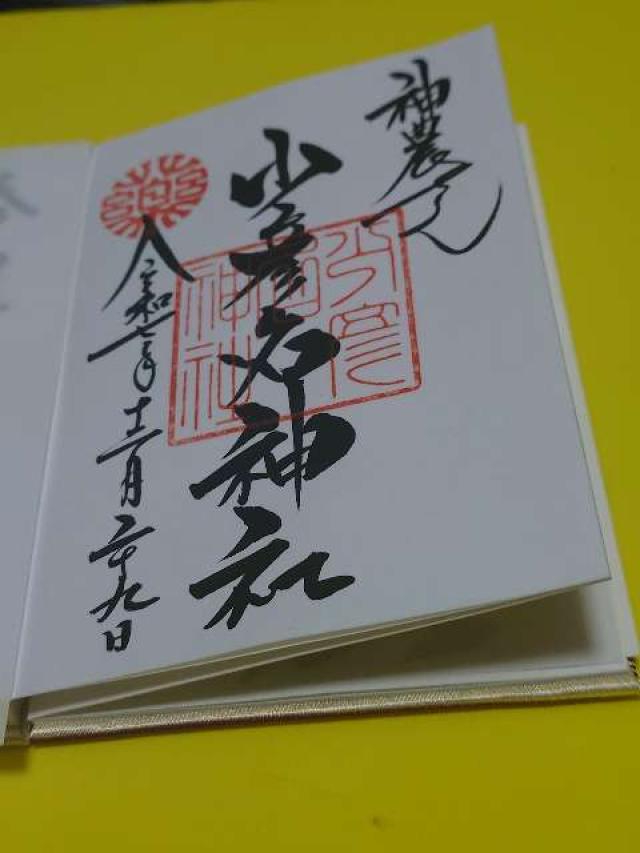 神農さん
少彦名神社
少彦名神社
薬
令和七年十二月二十九日